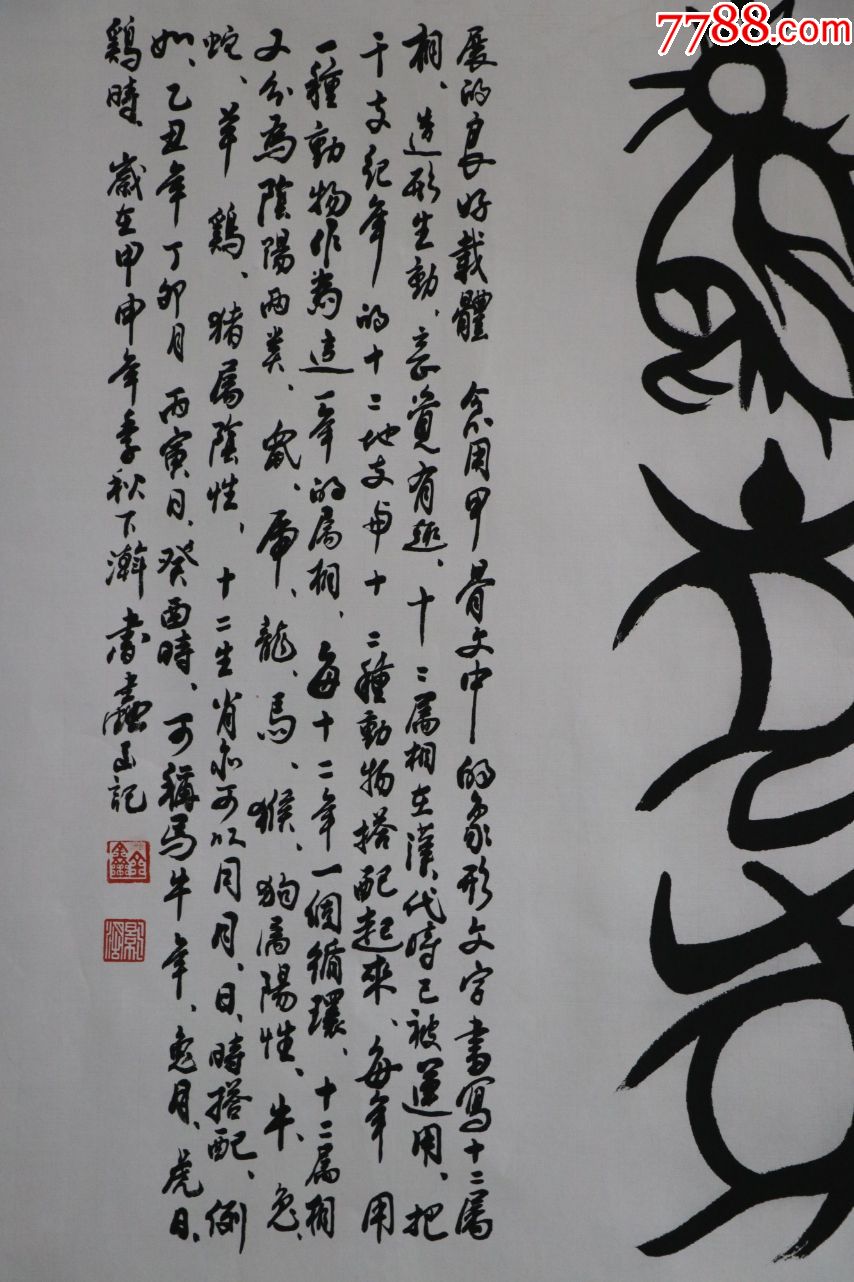 7788.com
展的良好載體 余用甲骨文中的象形文字書寫十二属
相、造形生動、意覚有趣、十二属相在漢代時已被運用、把
干支紀年的十二地支与十二種動物搭配起來、每年用
一種動物作為這一年的属相、每十二年一個循環、十二属相
又分為陰陽两类、鼠、虎、龍、馬、猴、狗属陽性、牛、兔、
蛇、羊、鷄、猪属陰性、十二生肖亦可以同月、日、時搭配、例
如、乙丑年丁卯月丙寅日、癸酉時、可稱為牛年、兔月、虎日、
鷄時、歲在甲申年季秋下澣書 記